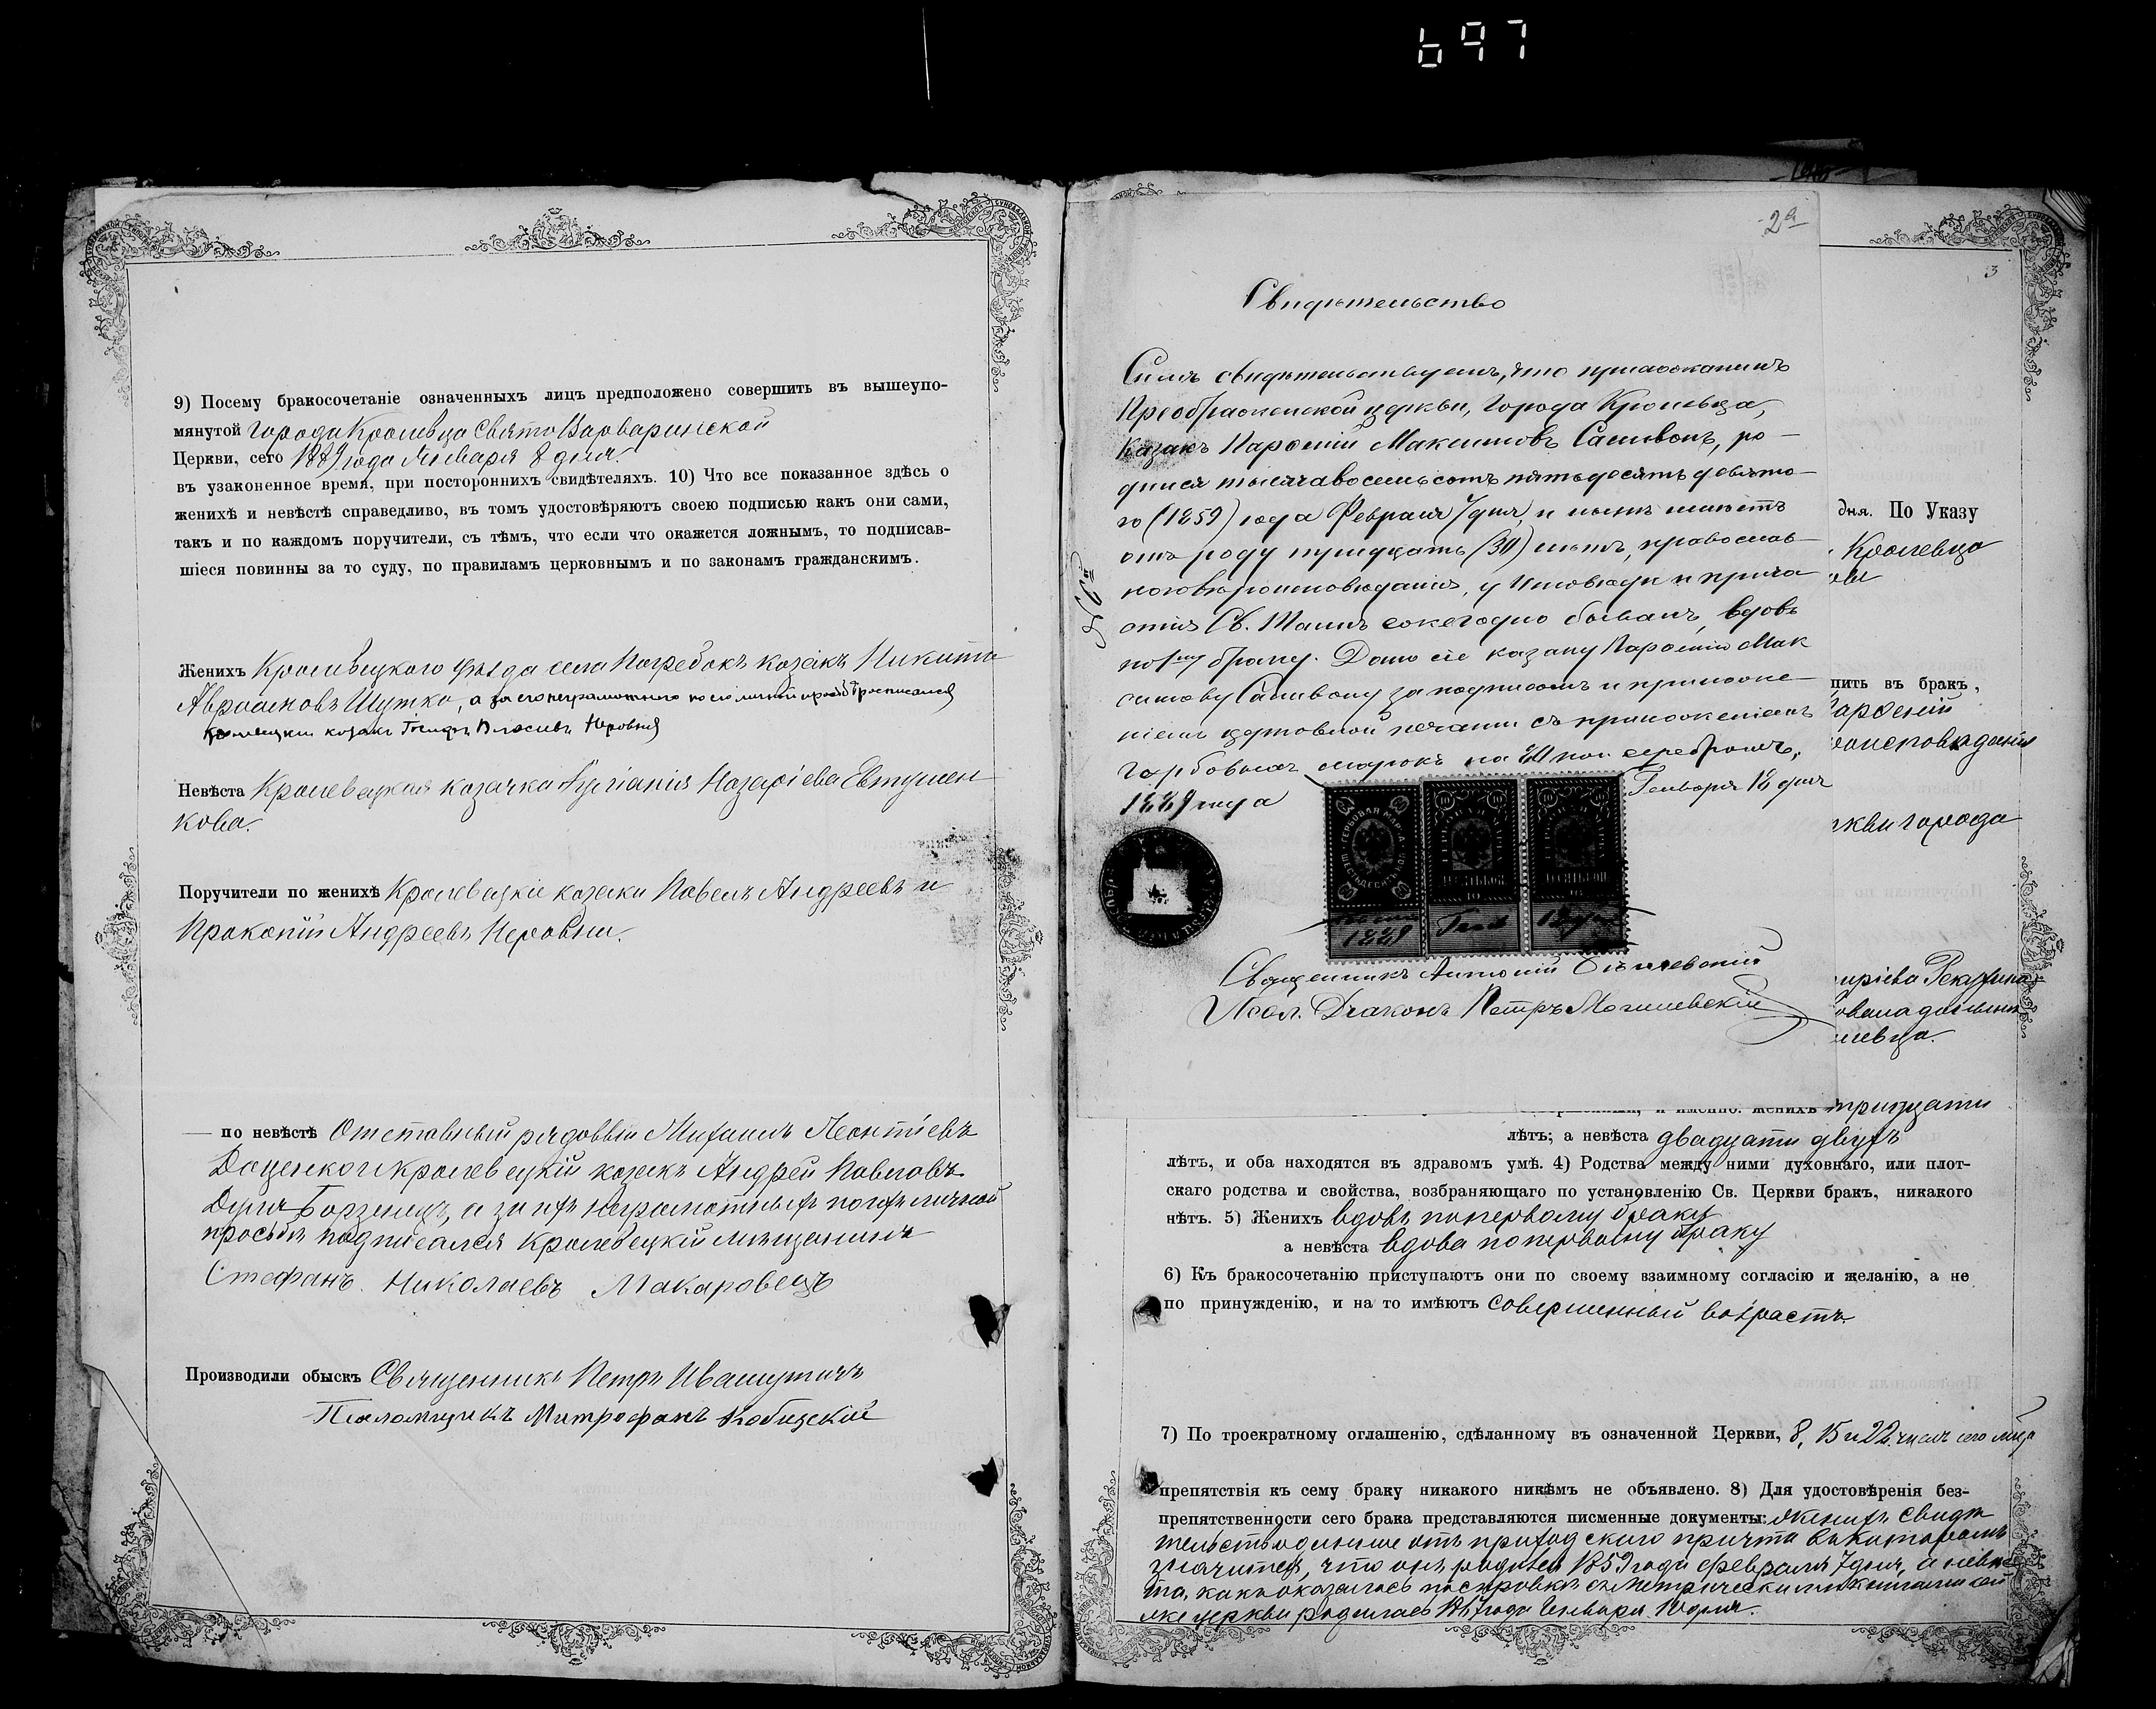 697
9) Посему бракосочетаніе означенныхъ лицъ предположено совершить въ вышеупо-
мянутой Города Кролевца Свято Варваринской
Церкви, сего 1889 года Января 8 дня
въ узаконенное время, при постороннихъ свидѣтеляхъ. 10) Что все показанное здѣсь о
женихѣ и невѣстѣ справедливо, въ томъ удостовѣряютъ своею подписью какъ они сами,
такъ и по каждомъ поручители, съ тѣмъ, что если что окажется ложнымъ, то подписав-
шіеся повинны за то суду, по правиламъ церковнымъ и по законамъ гражданскимъ.
Женихъ Кролевецкого уѣзда села Погребокъ козакъ Никита
Авраамовъ Шутко, а за его неграмотного по его личной просьбѣ росписался
козакъ Власивъ Неровня
Невѣста Кролевецкая козачка Назаріева Евтушен
кова.
Поручители по женихѣ Кролевецкіе козаки Павелъ Андреевъ и
Прокопій Андреевъ Неровни.
по невѣстѣ Отставный рядовый Михаилъ Леонтіевъ
Доценко и кролевецкій козакъ Андрей Павловъ
а за ихъ неграмотныхъ по ихъ личной
просьбѣ подписался Кролевецкій мѣщанинъ
Стефанъ Николаевъ Макаровецъ
Производили обыскъ Священникъ Петръ Ивашутичъ
Псаломщикъ Митрофанъ
2а
3
Свидѣтельство
Симъ свидѣтельствуемъ, что прихожанинъ
Преображенской церкви, города Кролевца,
Казакъ Парфеній Максимовъ Саливонъ, ро-
дился тысяча восемьсотъ пятьдесятъ девято-
го (1859) года Февраля 7 дня, и нынѣ имѣетъ
отъ роду тридцать (30) лѣтъ, православ-
наго вѣроисповѣданія, у Исповѣди и прича
стія Св. Таинъ ежегодно бывалъ, вдовъ
по 1му браку. Дано сіе казаку Парфенію Мак
симову Саливону за подписомъ и приложе-
ніемъ церковной печати съ приложеніемъ
гербовыхъ марокъ на 80 коп серебромъ,
1889 года Генваря 18 дня
ГЕРБОВАЯ МАРКА
1889 Генв 18 дня
Священникъ Антоній
Псал. Діаконъ Петръ Могилевскій
дня. По Указу
Кролевца
пить въ бракъ,
Парфеній
роисповѣданія
ркви города
левца.
тридцати
лѣтъ; а невѣста двадцати двухъ
лѣтъ, и оба находятся въ здравомъ умѣ. 4) Родства между ними духовнаго, или плот-
скаго родства и свойства, возбраняющаго по установленію Св. Церкви бракъ, никакого
нѣтъ. 5) Женихъ вдовъ по первому браку
а невѣста вдова по первому браку
6) Къ бракосочетанію приступаютъ они по своему взаимному согласію и желанію, а не
по принужденію, и на то имѣютъ совершенный возрастъ.
7) По троекратному оглашенію, сдѣланному въ означенной Церкви, 8, 15 и 22 числъ сего мца
препятствія къ сему браку никакого никѣмъ не объявлено. 8) Для удостовѣренія без-
препятственности сего брака представляются писменные документы: женихъ свидѣ
тельство данное отъ приходскаго причта въ которомъ
значится, что онъ родился 1859 года февраля 7 дня, а невѣс
та, какъ оказалось по справкѣ съ метрическими книгами сей
же церкви родилась 1867 года Января 10 дня.